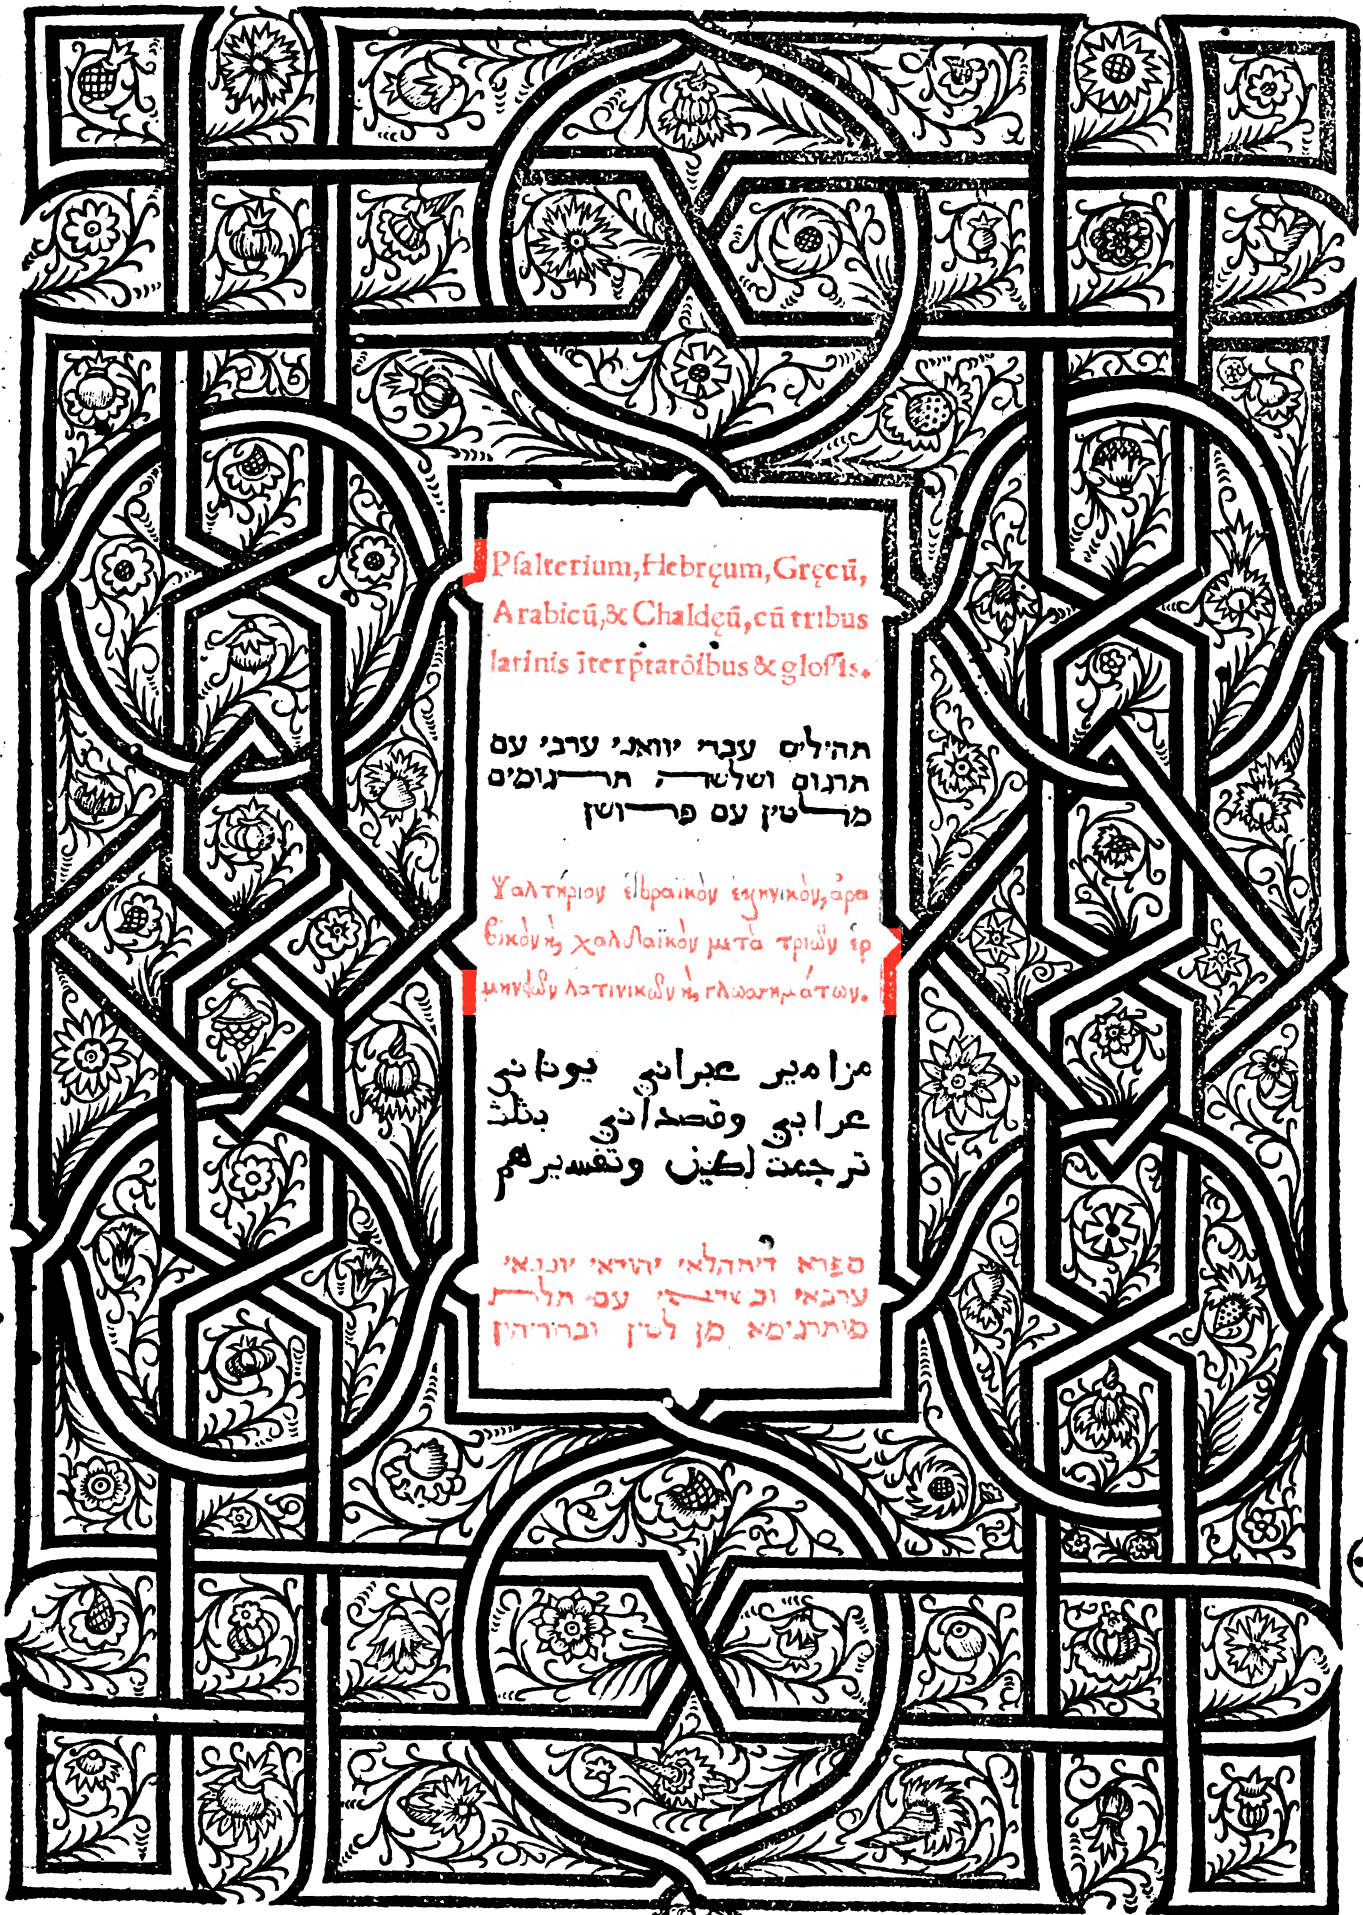 Pſalterium, Hebręum, Gręcū,
Arabicū, & Chaldęū, cū tribus
latinis īterp̄tatōibus & gloſſis.
תהילים עברי יוואני ערבי עם
תרגום ושלשה תרגומים
מלטין עם פרושן
Ψαλτήριον ἑβραϊκὸν ἑλληνικὸν, ἀρα
βικὸν ϗ χαλδαϊκὸν μετὰ τριῶν ἑρ
μηνειῶν λατινικῶν ϗ γλωσσημάτων.
مزامير عبراني يوناني
عرابي وقصداني بثلث
ترجمت لطيني وتفسيرهم
ספרא דיתהלאי יהודאי יוננאי
ערבאי וכשדאי עם תלת
מותרגימא מן לטין וברוריהון